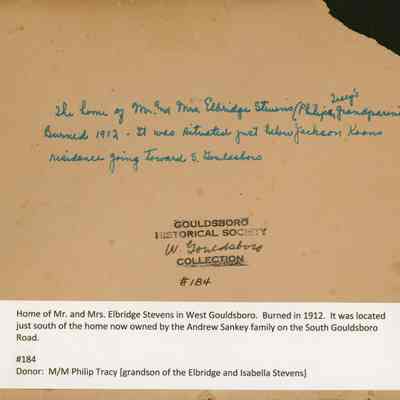 Tracy's
The home of Mr. and Mrs. Elbridge Stevens (Philip's Grandparents
Burned 1912 - It was situated just below Jackson Koons
residence going toward S. Gouldsboro
GOULDSBORO
HISTORICAL SOCIETY
W. Gouldsboro
COLLECTION
#184
Home of Mr. and Mrs. Elbridge Stevens in West Gouldsboro.  Burned in 1912.  It was located
just south of the home now owned by the Andrew Sankey family on the South Gouldsboro
Road.
#184
Donor:  M/M Philip Tracy [grandson of the Elbridge and Isabella Stevens}